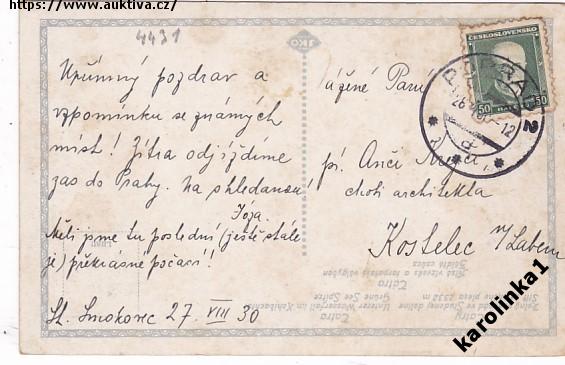 https://www.auktiva.cz/
4431
Upřímný pozdrav a
vzpomínku se známých
míst! Zítra odjíždíme
zas do Prahy. Na shledanou
Jóža.
Měli jsme tu poslední (ještě stále
je) překrásné počasí!
St. Smokovec 27 VIII 30
JKO
ČESKOSLOVENSKO
50 50
PRAHA 2
Vážené Paní
pí. Anči
choti architekta
Kostelec n/Labem
Tatra
Grüne See Spitze
Tatra
karolinka1